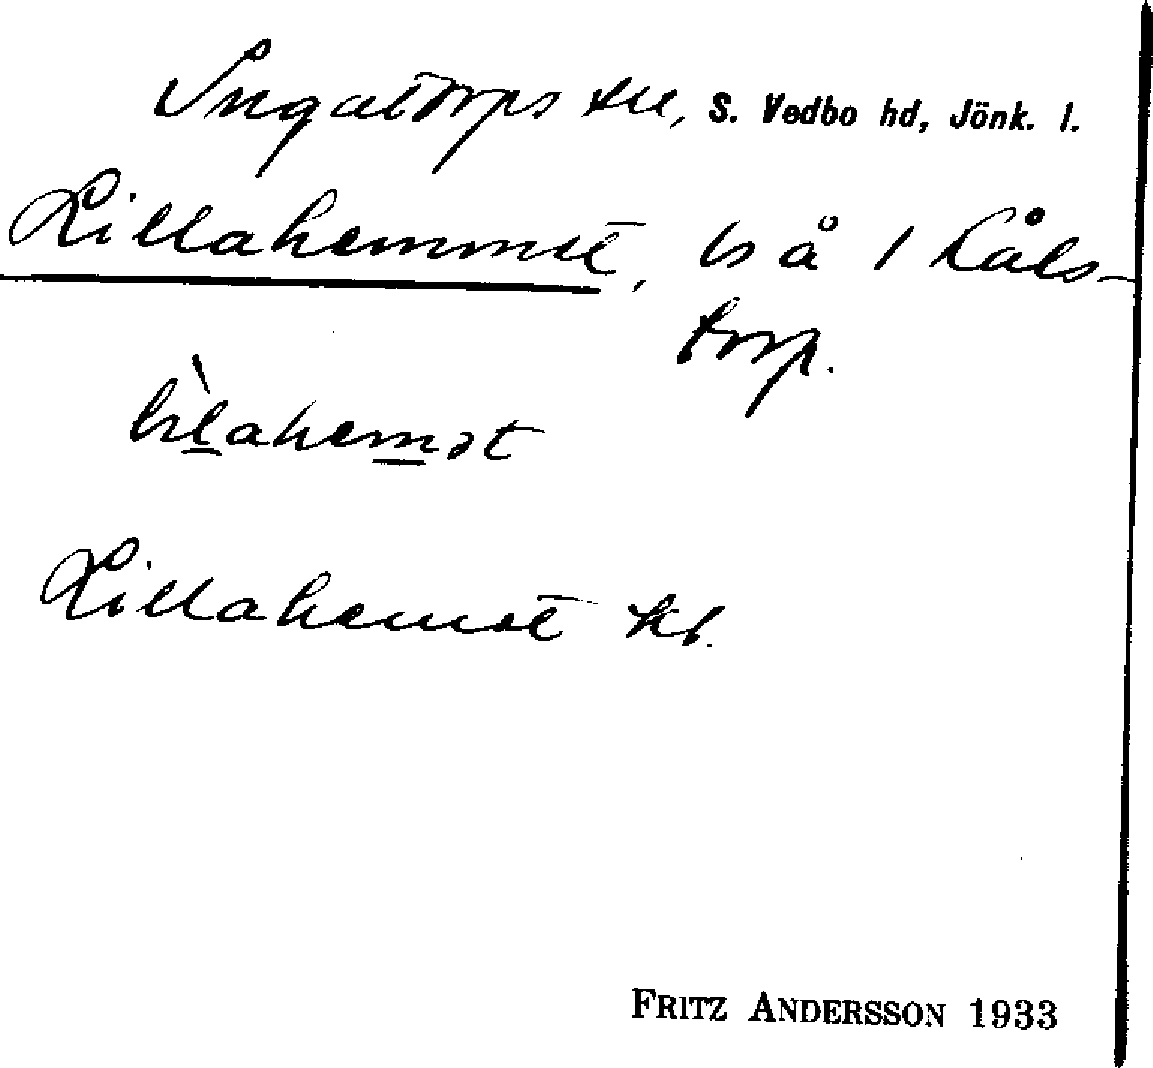 Ingatorps sn, S. Vedbo hd, Jönk. l.
Lillahemmet, ls å 1 Kåls-
torp.
lìlahemət
Lillahemmet
FRITZ ANDERSSON 1933